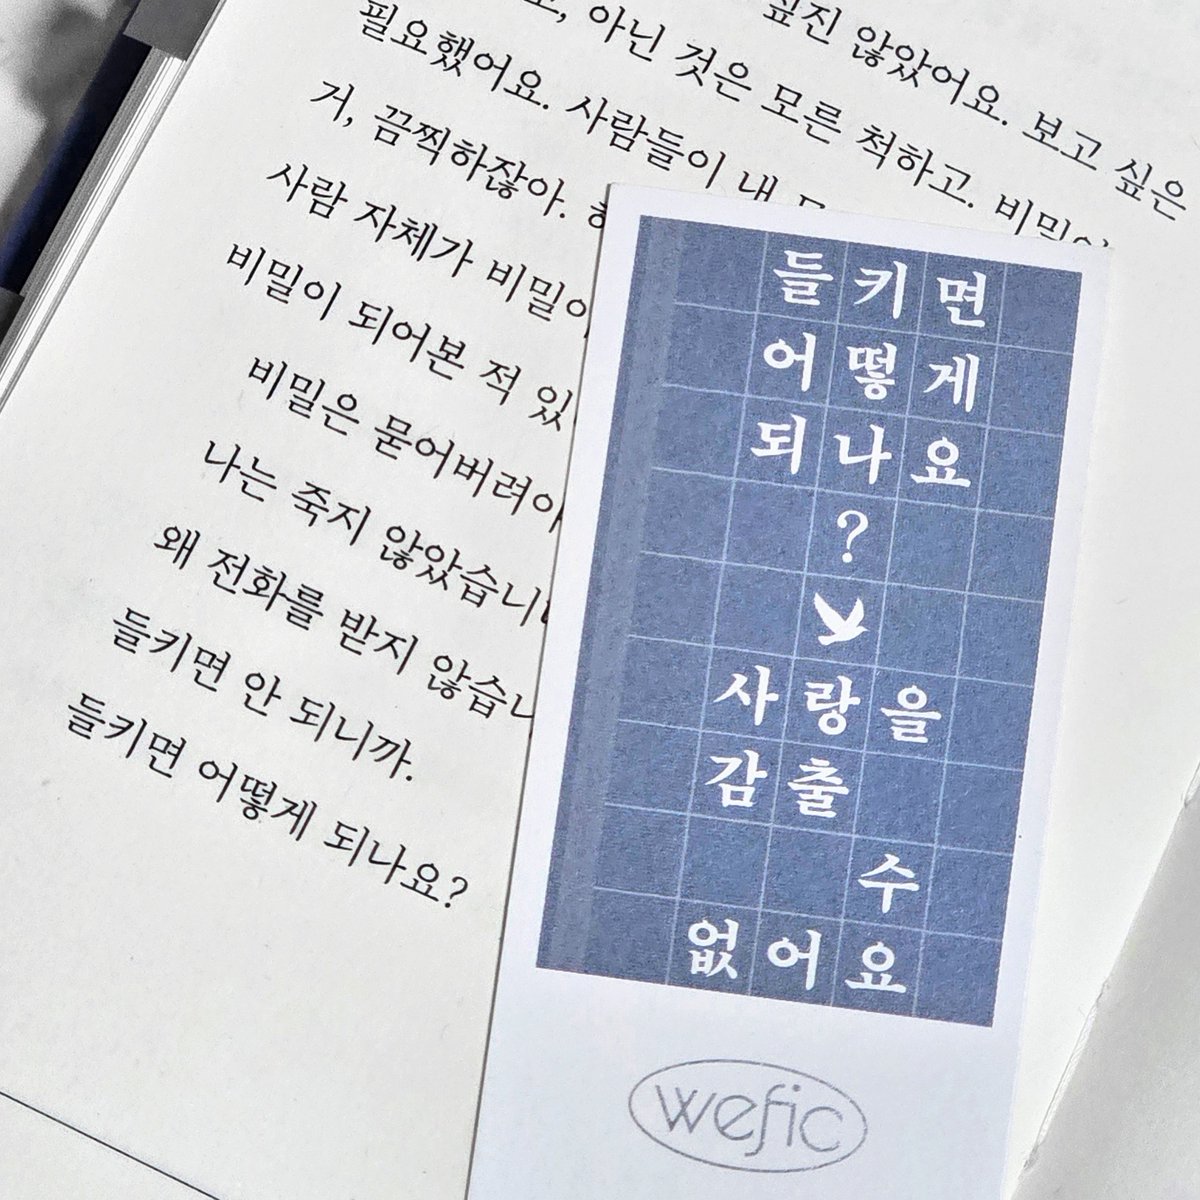 싶진 않았어요. 보고 싶은
아닌 것은 모른 척하고. 비밀이
필요했어요. 사람들이 내
거, 끔찍하잖아.
사람 자체가 비밀이
비밀이 되어본 적 있
비밀은 묻어버려야
나는 죽지 않았습니
왜 전화를 받지 않습니
들키면 안 되니까.
들키면 어떻게 되나요?
들키면
어떻게
되나요
?
사랑을
감출
수
없어요
wefic